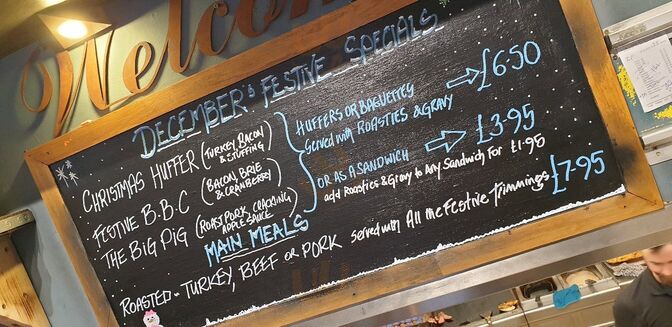 Welcom
DECEMBER'S FESTIVE SPECIALS
CHRISTMAS HUFFER (TURKEY, BACON & STUFFING)
FESTIVE B.B.C (BACON, BRIE & CRANBERRY)
THE BIG PIG (ROAST PORK, CRACKLING APPLE SAUCE)
HUFFERS OR BAGUETTES
Served with ROASTIES & GRAVY £6.50
OR AS A SANDWICH £3.95
add Roasties & Gravy to Any Sandwich For £1.95
MAIN MEALS
ROASTED - TURKEY, BEEF OR PORK served with All the Festive Trimmings £7.95